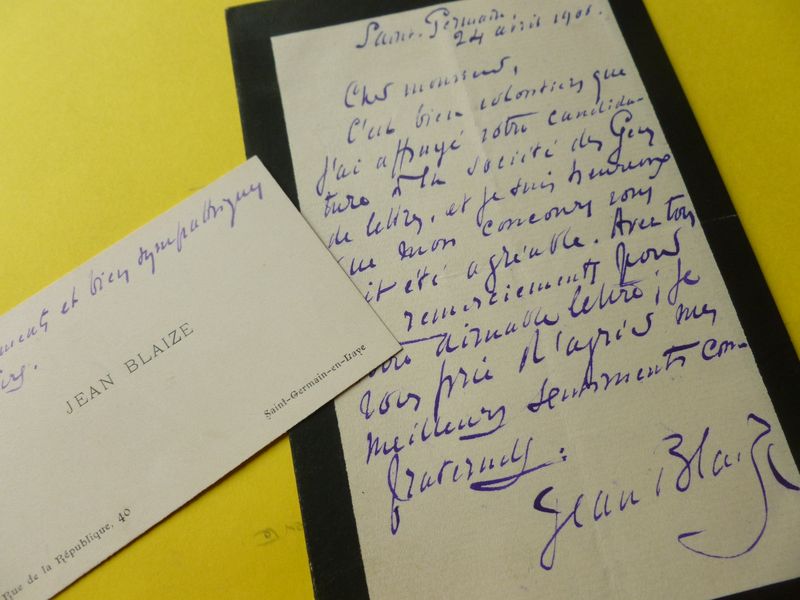 Saint-Germain,
24 avril 1901.
Cher monsieur,
C'est bien volontiers que
j'ai appuyé votre candida-
ture à la Société des Gens
de lettres, et je suis heureux
que mon concours vous
ait été agréable. Avec tous
remerciements pour
votre aimable lettre, je
vous prie d'agréer mes
meilleurs sentiments con-
fraternels.
Jean Blaize
ments et bien sympathiques
JEAN BLAIZE
Saint-Germain-en-Laye
Rue de la République, 40